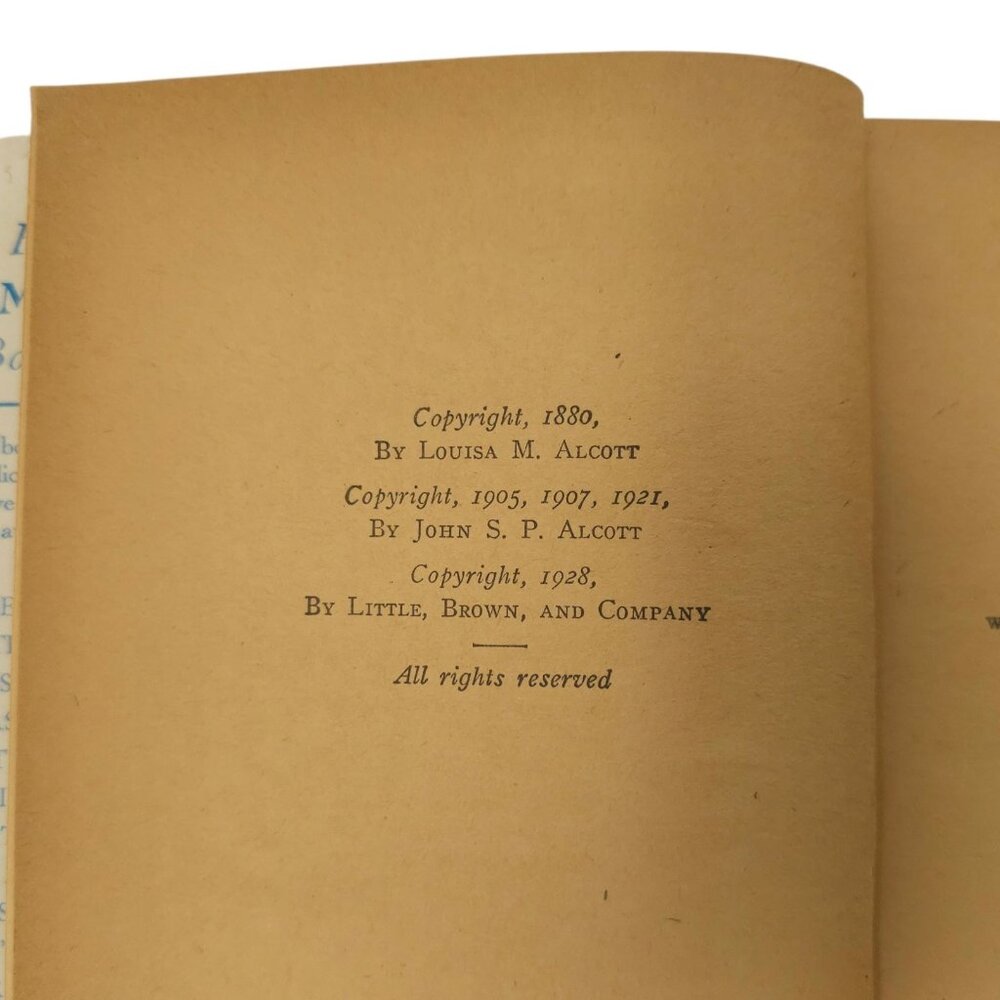 Copyright, 1880,
By Louisa M. Alcott
Copyright, 1905, 1907, 1921,
By John S. P. Alcott
Copyright, 1928,
By Little, Brown, and Company
All rights reserved